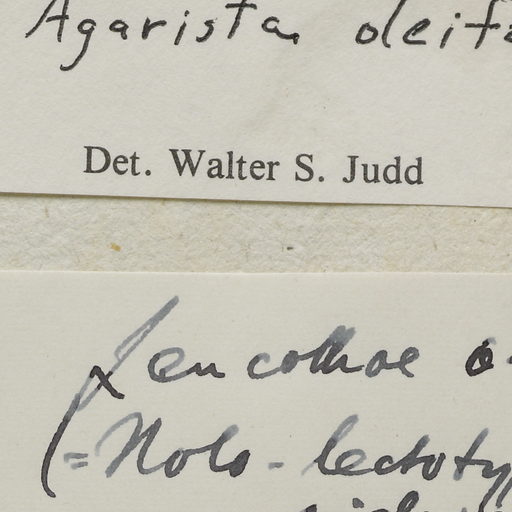 Agarista oleifo
Det. Walter S. Judd
Leucothoe o
(= Holo-lectoty